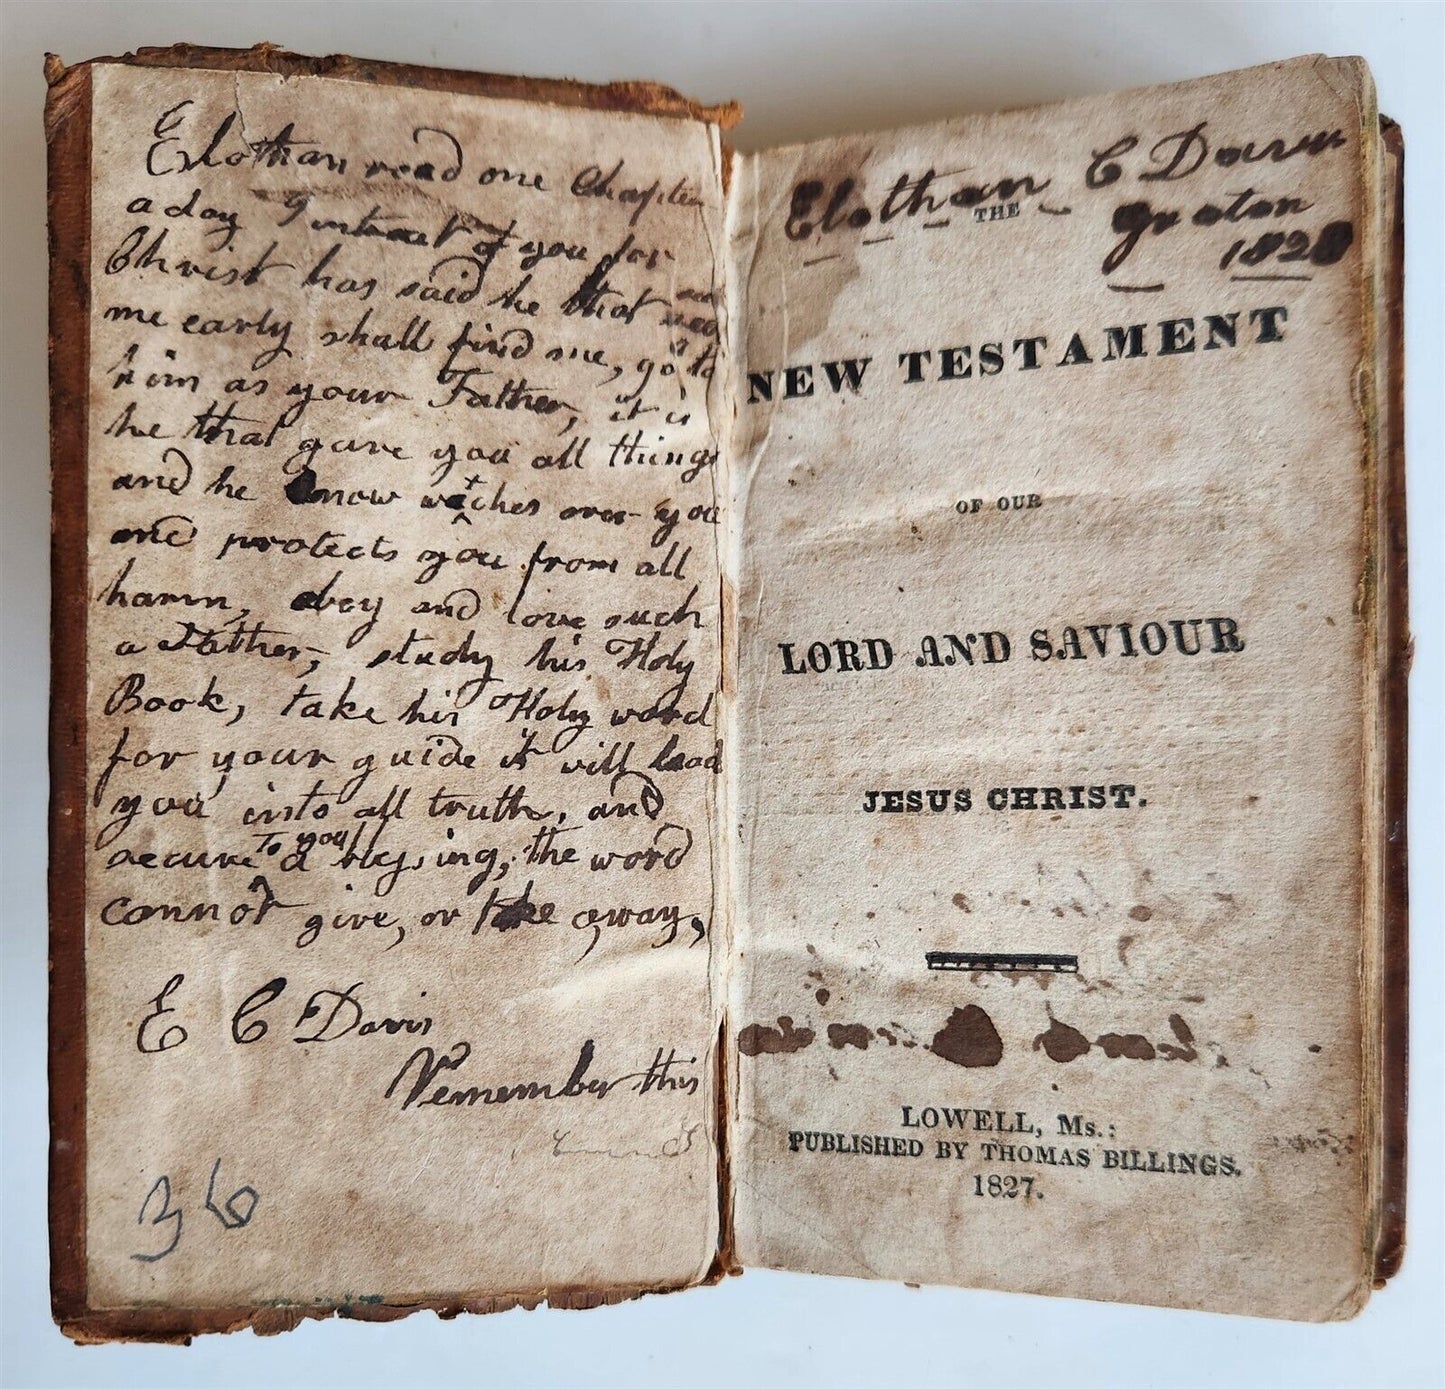 Elothan read one Chapter
a day I intreat of you for
Christ has said he that
me early shall find me, go to
him as your Father, it is
he that gave you all things
and he know watches over you
and protects you from all
harm, obey and love such
a Father, study his Holy
Book, take his Holy word
for your guide it will lead
you into all truth, and
secure to you a blessing, the word
cannot give, or take away,
E C Davis
Remember this
36
Elothan C Davis
Groton
1828
THE
NEW TESTAMENT
OF OUR
LORD AND SAVIOUR
JESUS CHRIST.
LOWELL, Ms.:
PUBLISHED BY THOMAS BILLINGS.
1827.